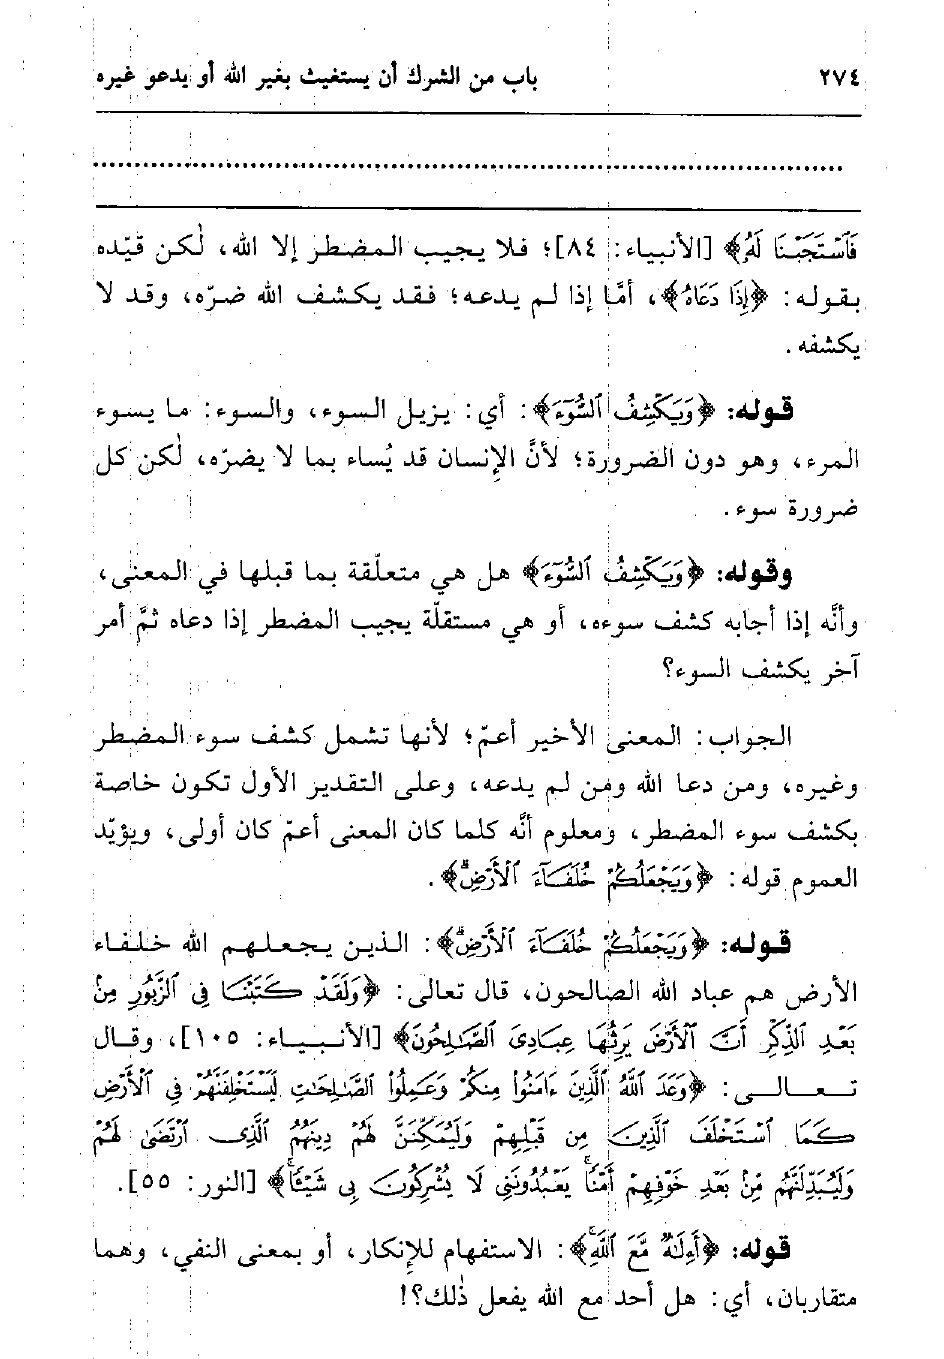 ٢٧٤ باب من الشرك أن يستغيث بغير الله أو يدعو غيره
فَٱسْتَجَبْنَا لَهُۥ﴾ [الأنبياء: ٨٤]؛ فلا يجيب المضطر إلا الله، لٰكن قيّده
بقوله: ﴿إِذَا دَعَاهُ﴾، أمَّا إذا لم يدعه؛ فقد يكشف الله ضرّه، وقد لا
يكشفه.
قوله: ﴿وَيَكْشِفُ ٱلسُّوٓءَ﴾: أي: يزيل السوء، والسوء: ما يسوء
المرء، وهو دون الضرورة؛ لأنَّ الإنسان قد يُساء بما لا يضرّه، لٰكن كل
ضرورة سوء.
وقوله: ﴿وَيَكْشِفُ ٱلسُّوٓءَ﴾ هل هي متعلّقة بما قبلها في المعنى،
وأنَّه إذا أجابه كشف سوءه، أو هي مستقلّة يجيب المضطر إذا دعاه ثمَّ أمر
آخر يكشف السوء؟
الجواب: المعنى الأخير أعمّ؛ لأنها تشمل كشف سوء المضطر
وغيره، ومن دعا الله ومن لم يدعه، وعلى التقدير الأول تكون خاصة
بكشف سوء المضطر، ومعلوم أنَّه كلما كان المعنى أعمّ كان أولى، ويؤيّد
العموم قوله: ﴿وَيَجْعَلُكُمْ خُلَفَآءَ ٱلْأَرْضِۗ﴾.
قوله: ﴿وَيَجْعَلُكُمْ خُلَفَآءَ ٱلْأَرْضِۗ﴾: الذين يجعلهم الله خلفاء
الأرض هم عباد الله الصالحون، قال تعالى: ﴿وَلَقَدْ كَتَبْنَا فِى ٱلزَّبُورِ مِنۢ
بَعْدِ ٱلذِّكْرِ أَنَّ ٱلْأَرْضَ يَرِثُهَا عِبَادِىَ ٱلصَّٰلِحُونَ﴾ [الأنبياء: ١٠٥]، وقال
تعالى: ﴿وَعَدَ ٱللَّهُ ٱلَّذِينَ ءَامَنُوا۟ مِنكُمْ وَعَمِلُوا۟ ٱلصَّٰلِحَٰتِ لَيَسْتَخْلِفَنَّهُمْ فِى ٱلْأَرْضِ
كَمَا ٱسْتَخْلَفَ ٱلَّذِينَ مِن قَبْلِهِمْ وَلَيُمَكِّنَنَّ لَهُمْ دِينَهُمُ ٱلَّذِى ٱرْتَضَىٰ لَهُمْ
وَلَيُبَدِّلَنَّهُم مِّنۢ بَعْدِ خَوْفِهِمْ أَمْنًاۚ يَعْبُدُونَنِى لَا يُشْرِكُونَ بِى شَيْـًٔاۚ﴾ [النور: ٥٥].
قوله: ﴿أَءِلَٰهٌ مَّعَ ٱللَّهِۚ﴾: الاستفهام للإنكار، أو بمعنى النفي، وهما
متقاربان، أي: هل أحد مع الله يفعل ذٰلك؟!